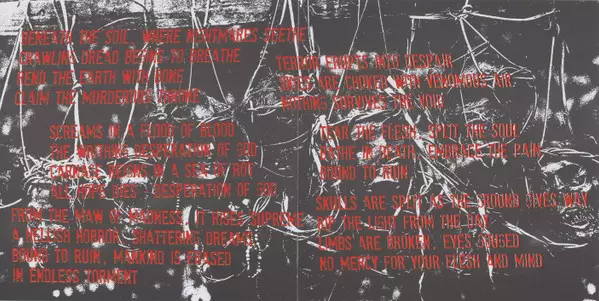 BENEATH THE SOIL, WHERE NIGHTMARES SEETHE
CRAWLING DREAD BEGINS TO BREATHE
REND THE EARTH WITH BONE
CLAIM THE MURDEROUS THRONE
SCREAMS IN A FLOOD OF BLOOD
THE WRITHING DESPERATION OF GOD
CARNAGE REIGNS IN A SEA OF ROT
ALL HOPE DIES - DESPERATION OF GOD
FROM THE MAW OF MADNESS, IT RISES SUPREME
A HELLISH HORROR, SHATTERING DREAMS
BOUND TO RUIN, MANKIND IS ERASED
IN ENDLESS TORMENT
TERROR ERUPTS INTO DESPAIR
SKIES ARE CHOKED WITH VENOMOUS AIR
NOTHING SURVIVES THE VOID
TEAR THE FLESH, SPLIT THE SOUL
BATHE IN DEATH, EMBRACE THE PAIN
BOUND TO RUIN
SKULLS ARE SPLIT AS THE GROUND GIVES WAY
RIP THE LIGHT FROM THE DAY
LIMBS ARE BROKEN, EYES GOUGED
NO MERCY FOR YOUR FLESH AND MIND